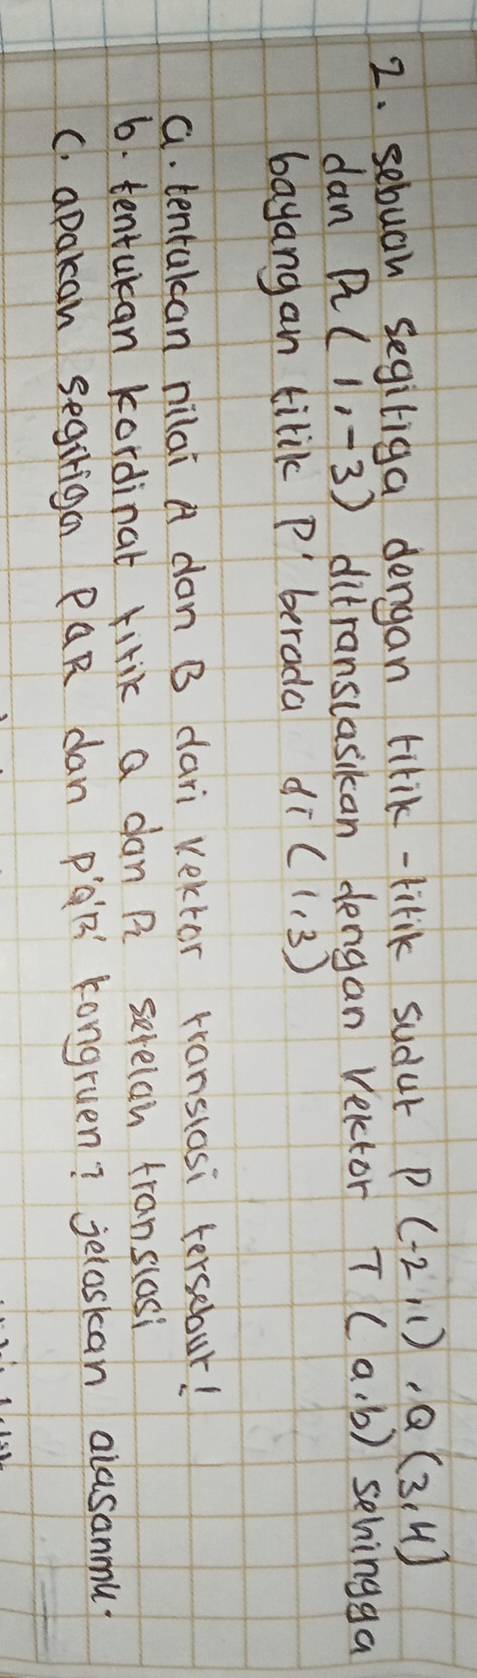 2. sebuah segitiga dengan titik-titik sudut P (-2,1), Q (3,4)
dan R (1,-3) ditranslasikan dengan vektor T (a,b) sehingga
bayangan titik P' berada di (1,3)
a. tentukan nilai A dan B dari vektor translasi tersebut!
b. tentukan kordinat titik Q dan R setelah translasi
c. apakah segitiga PQR dan P'Q'R' kongruen? jelaskan alasanmu.